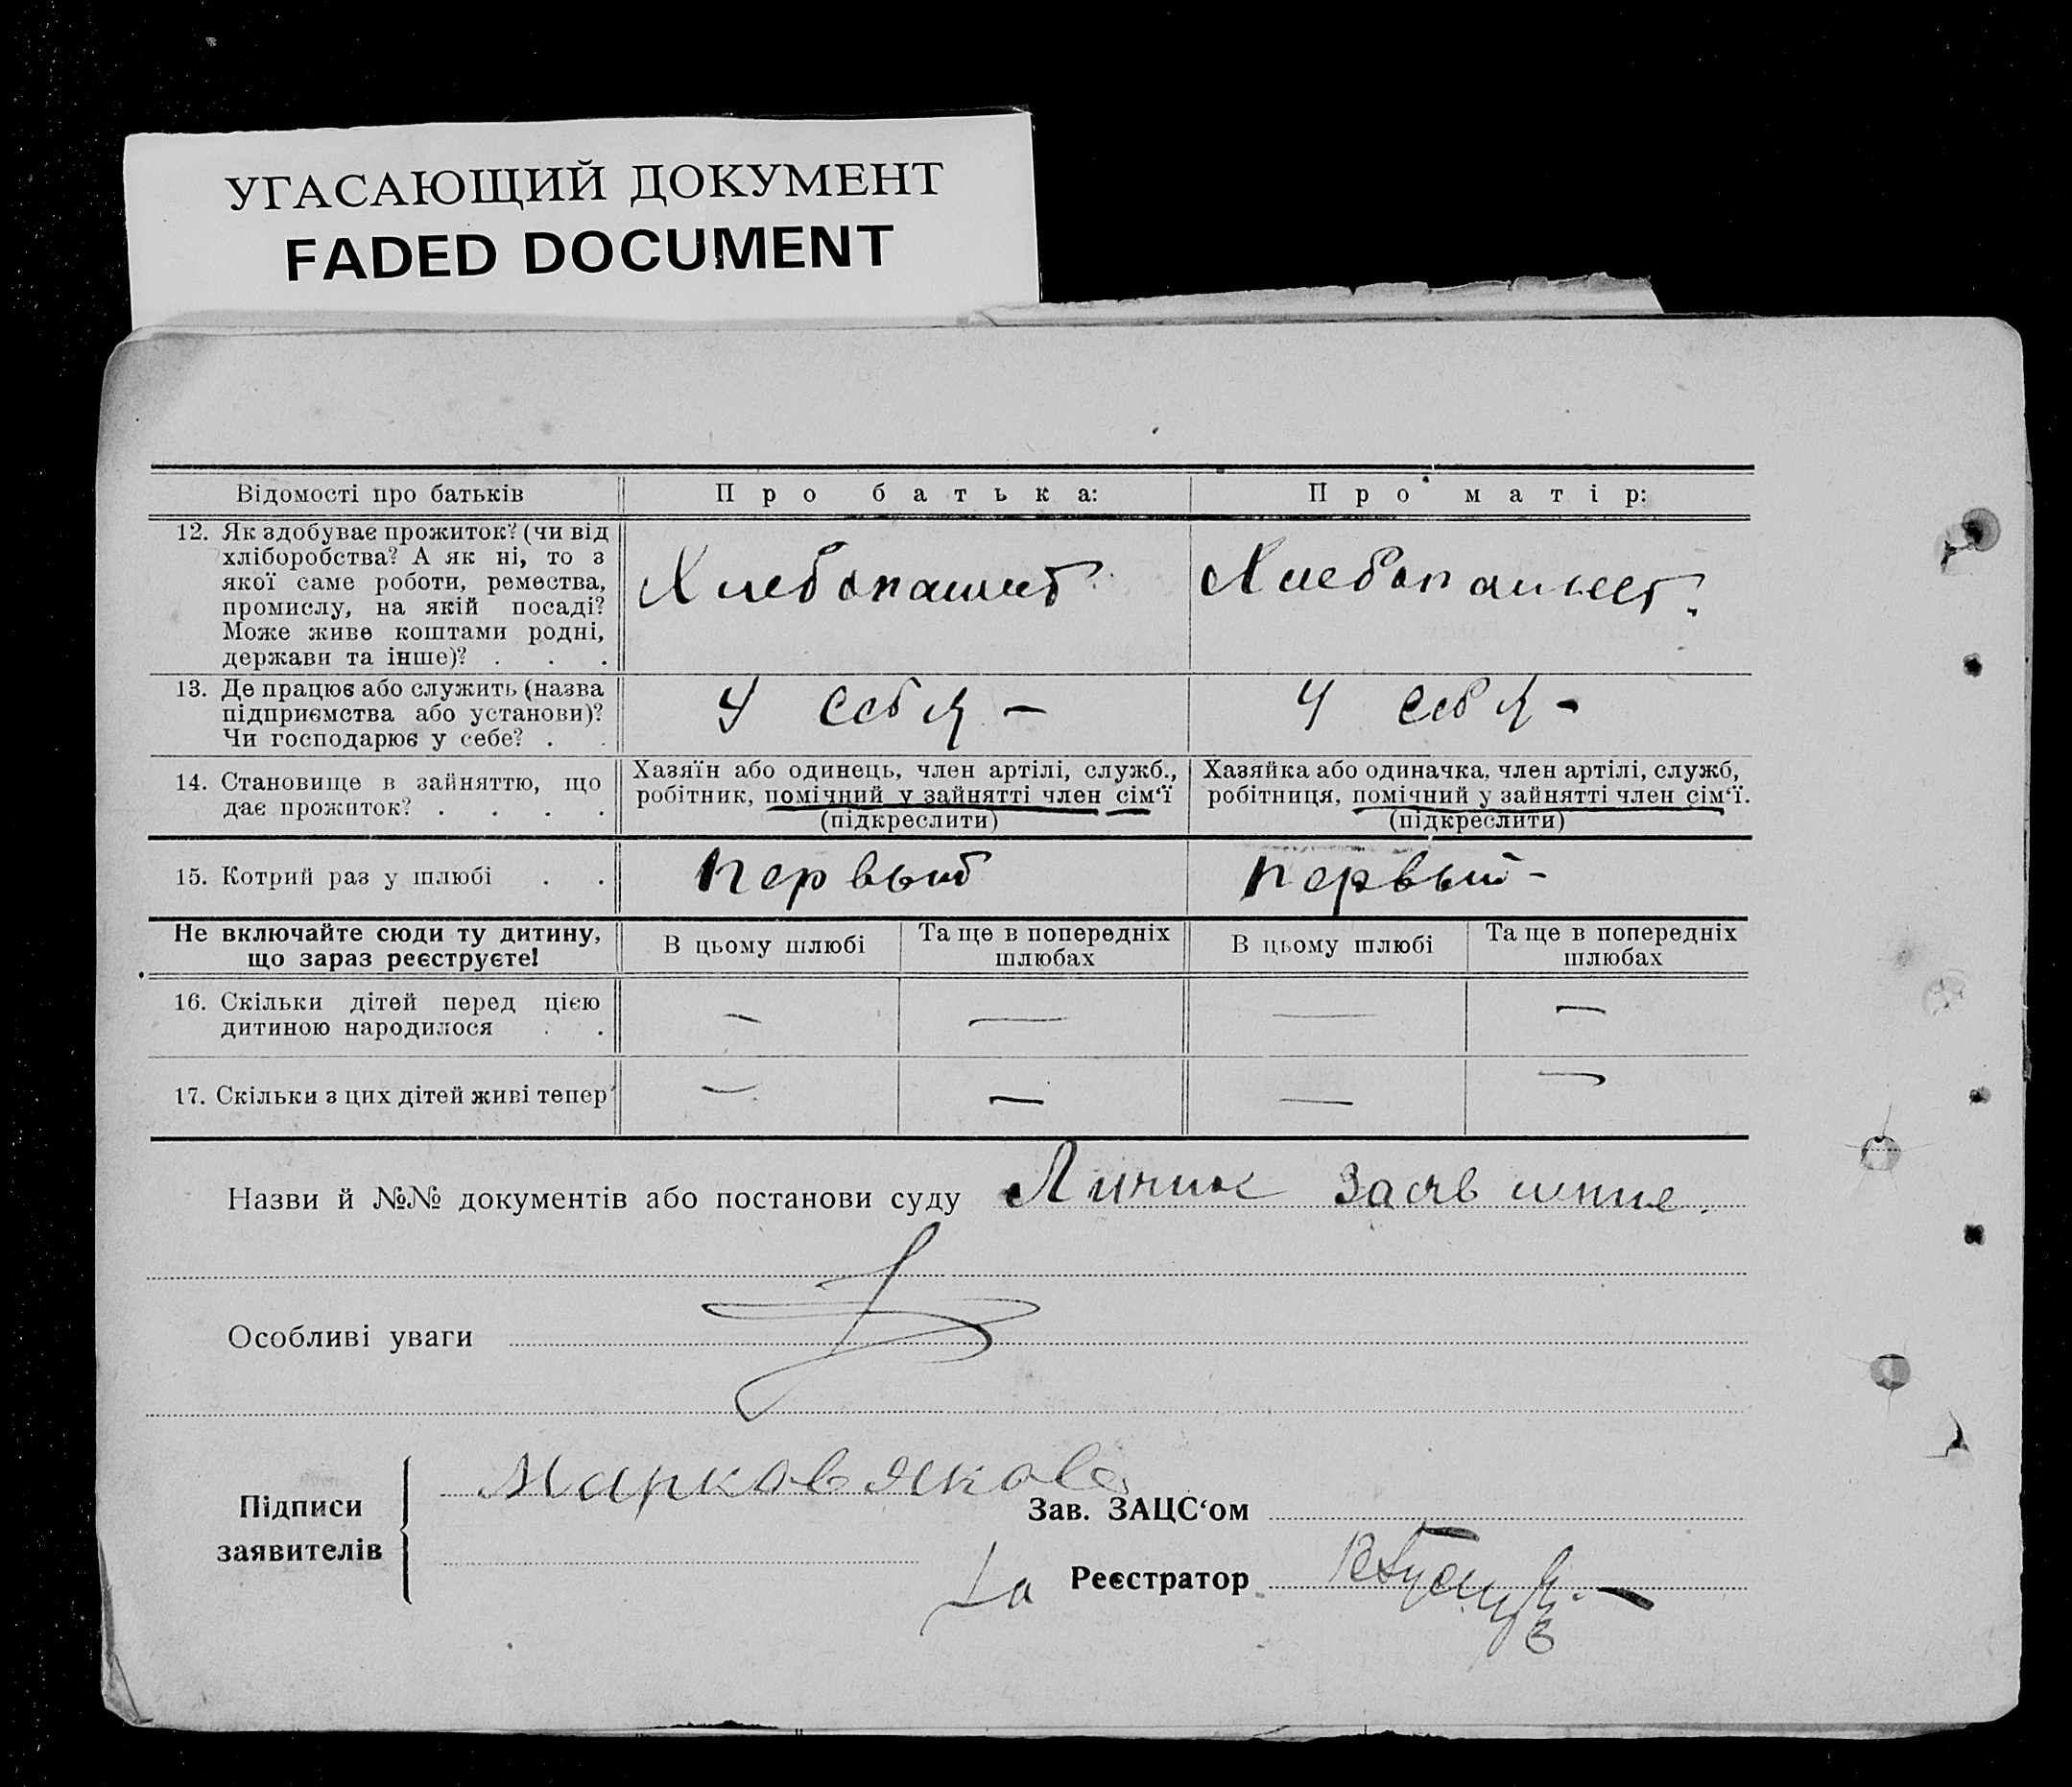 УГАСАЮЩИЙ ДОКУМЕНТ
FADED DOCUMENT
Відомості про батьків
Про батька:
Про матір:
12. Як здобуває прожиток? (чи від
хліборобства? А як ні, то з
якої саме роботи, ремества,
промислу, на якій посаді?
Може живе коштами родні,
держави та інше)? . . .
Хлебопашест
Хлебопашест.
13. Де працює або служить (назва
підприємства або установи)?
Чи господарює у себе? . .
У себя —
У себя -
14. Становище в зайняттю, що
дає прожиток? . . . .
Хазяїн або одинець, член артілі, служб.,
робітник, помічний у зайнятті член сім‘ї
(підкреслити)
Хазяйка або одиначка, член артілі, служб,
робітниця, помічний у зайнятті член сім‘ї.
(підкреслити)
15. Котрий раз у шлюбі . .
первый
первый -
Не включайте сюди ту дитину,
що зараз реєструєте!
В цьому шлюбі
Та ще в попередніх
шлюбах
В цьому шлюбі
Та ще в попередніх
шлюбах
16. Скільки дітей перед цією
дитиною народилося . .
— — — —
17. Скільки з цих дітей живі тепер
— — — —
Назви й №№ документів або постанови суду Личик заявление.
Особливі уваги
Підписи
заявителів
Зав. ЗАЦС‘ом
Реєстратор